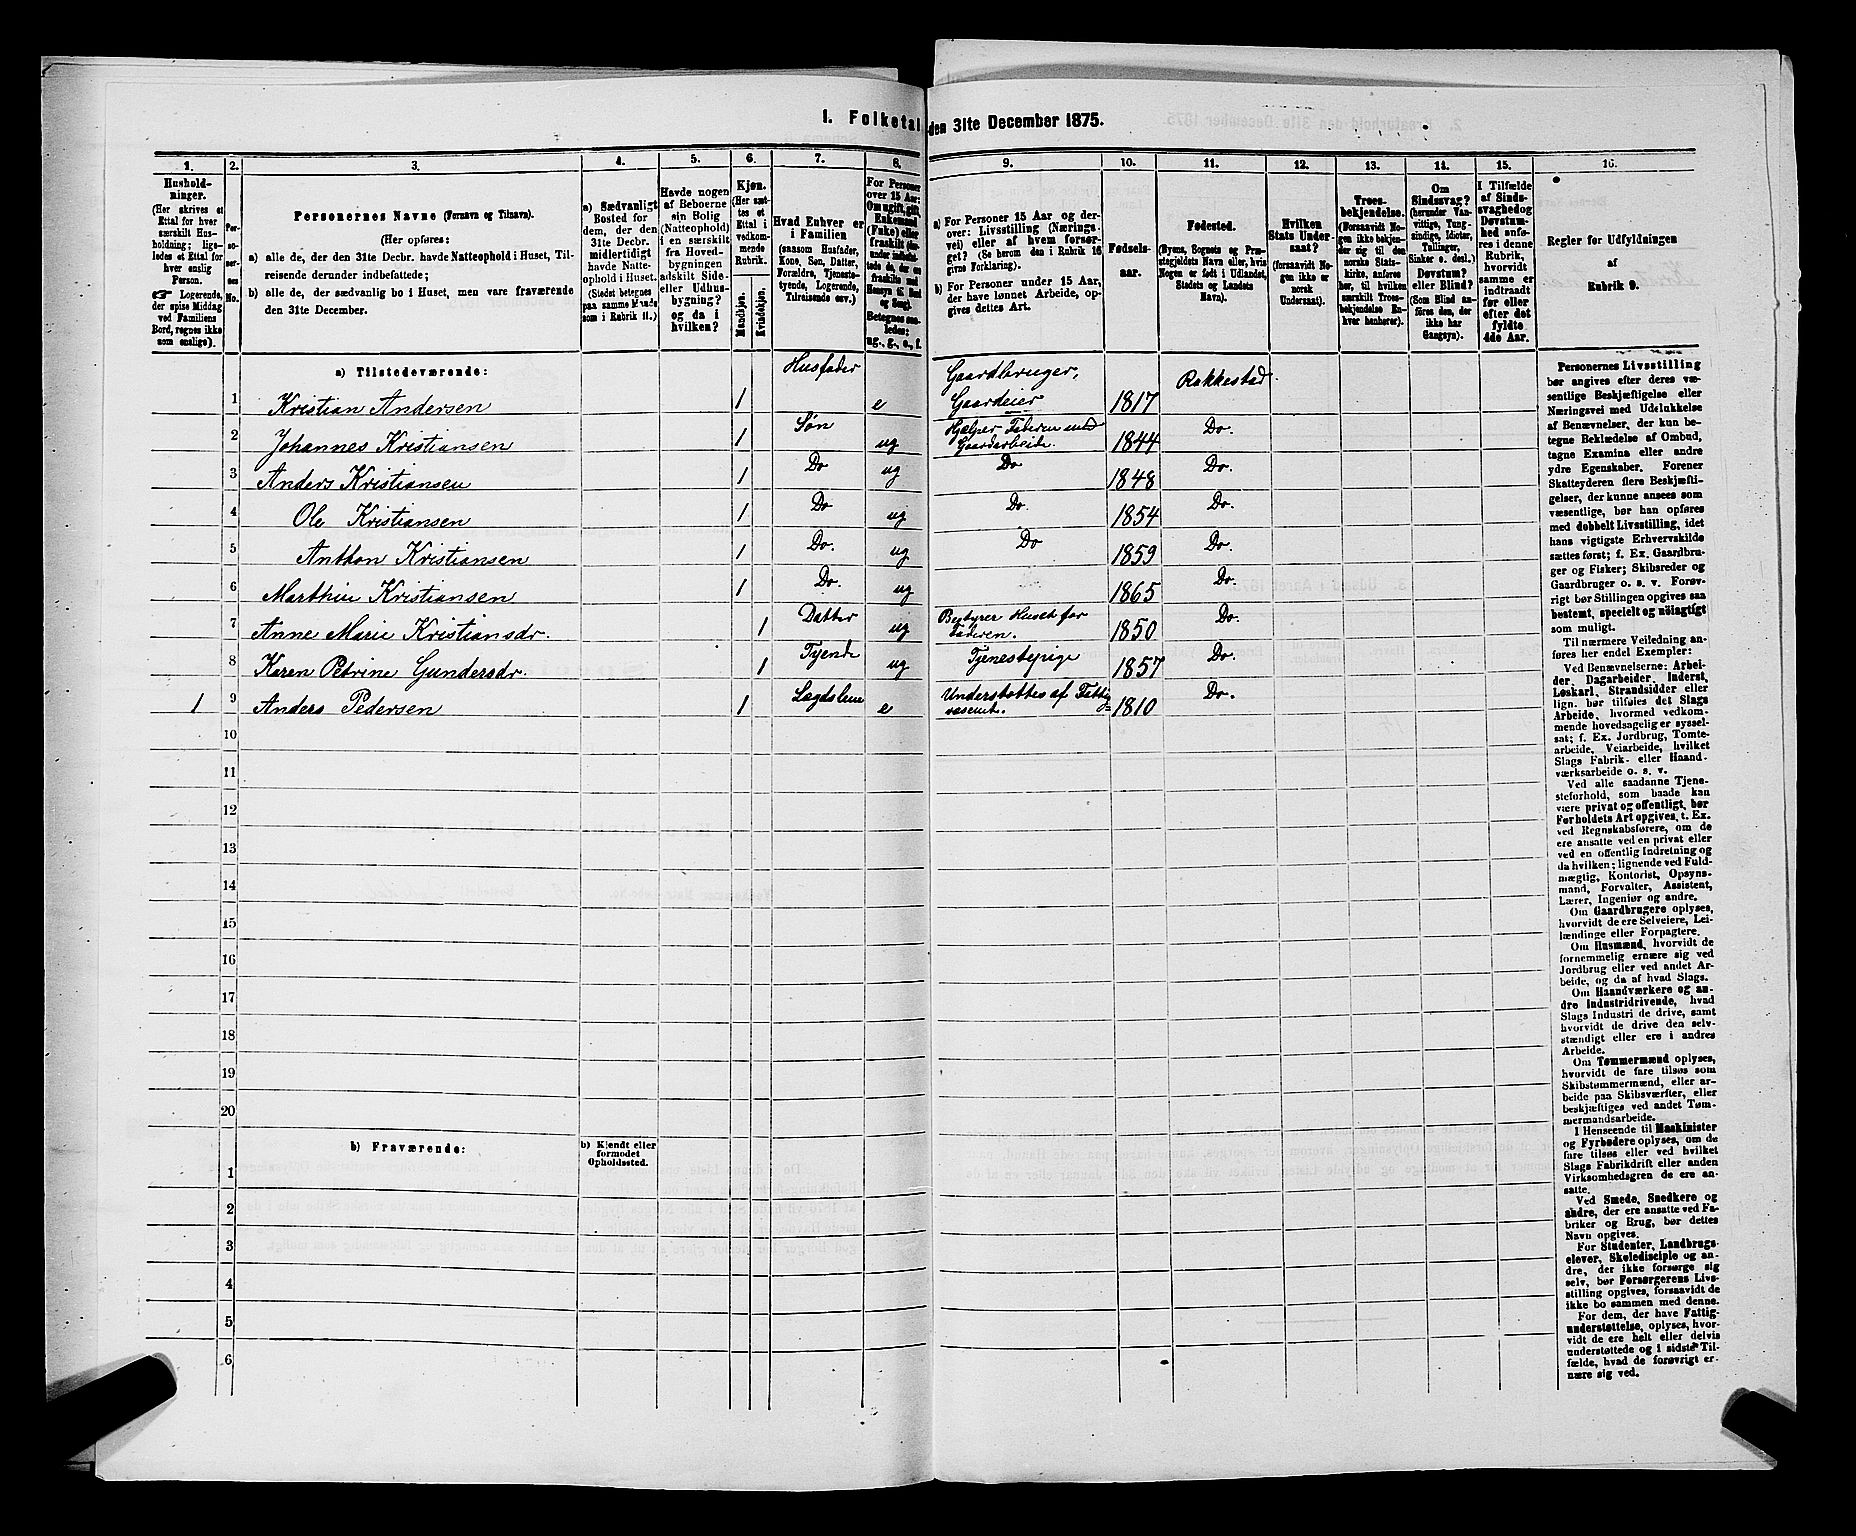 1. Folketal den 31te December 1875.
1. 2. 3. 4. 5. 6. 7. 8. 9. 10. 11. 12. 13. 14. 15. 16.
Hushold-
ninger.
(Her skrives et
Ettal for hver
særskilt Hus-
holdning; lige-
ledes et Ettal for
hver enslig
Person.
☞ Logerende,
der spise Middag
ved Familiens
Bord, regnes ikke
som enslige).
Per-
so-
ner-
nes
No.
Personernes Navne (Fornavn og Tilnavn).
(Her opføres:
a) alle de, der den 31te Decbr. havde Natteophold i Huset, Til-
reisende derunder indbefattede;
b) alle de, der sædvanlig bo i Huset, men vare fraværende
den 31te December.
a) Sædvanligt
Bosted for
dem, der den
31te Decbr.
midlertidigt
havde Natte-
ophold i Huset.
(Stedet betegnes
paa samme Maade
som i Rubrik 11.)
Havde nogen
af Beboerne
sin Bolig
(Natteophold)
i en særskilt
fra Hoved-
bygningen
adskilt Side-
eller Udhus-
bygning?
og da i
hvilken?
Kjøn.
(Her sæt-
tes et
Ettal i
vedkom-
mende
Rubrik.
Mandkjøn.
Kvindekjøn.
Hvad Enhver er
i Familien
(saasom Husfader,
Kone, Søn, Datter,
Forældre, Tjeneste-
tyende, Logerende,
Tilreisende osv.)
For Personer
over 15 Aar:
Om ugift, gift,
Enkemand
(Enke) eller
fraskilt
Betegnes saa-
ledes:
ug., g., e., f.
a) For Personer 15 Aar og der-
over: Livsstilling (Nærings-
vei) eller af hvem forsør-
get? (Se herom den i Rubrik 16
givne Forklaring).
b) For Personer under 15 Aar,
der have lønnet Arbeide, op-
gives dettes Art.
Fødsels-
aar.
Fødested.
(Byens, Sognets og Præ-
stegjeldets Navn eller, hvis
Nogen er født i Udlandet,
Stedets og Landets
Navn).
Hvilken
Stats Under-
saat?
(forsaavidt No-
gen ikke er
norsk
Undersaat).
Troes-
bekjendelse.
(Forsaavidt No-
gen ikke bekjen-
der sig til den
norske Stats-
kirke, anføres
her, til hvilken
særskilt Troes-
bekjendelse En-
hver henhører).
Om
Sindssvag?
(herunder Van-
vittige, Tung-
sindige, Idioter,
Tullinger,
Sinker o. desl.)
Døvstum?
eller Blind?
(Som Blind an-
føres den, der
ikke har
Gangsyn).
I Tilfælde
af Sinds-
svaghed og
Døvstum-
hed anfø-
res i denne
Rubrik,
hvorvidt
samme er
indtraadt
før eller
efter det
fyldte
4de Aar.
Regler for Udfyldningen
af
Rubrik 9.
a) Tilstedeværende:
1 Kristian Andersen 1 Husfader e Gaardbruger, Gaardeier 1817 Rakkestad
2 Johannes Kristiansen 1 Søn ug Hjælper Faderen med Gaardarbeide 1844 Do.
3 Anders Kristiansen 1 Do ug Do 1848 Do.
4 Ole Kristiansen 1 Do ug Do. 1854 Do.
5 Anthon Kristiansen 1 Do. ug Do 1859 Do.
6 Marthin Kristiansen 1 Do. ug 1865 Do.
7 Anne Marie Kristiansdr. 1 Datter ug Bestyrer Huset for Faderen. 1850 Do.
8 Karen Petrine Gundersdr. 1 Tyende ug Tjenestepige 1857 Do.
1 9 Anders Pedersen 1 Lægdslem e Understøttes af Fattig=væsenet. 1810 Do.
10
11
12
13
14
15
16
17
18
19
20
b) Fraværende:
b) Kjendt eller
formodet
Opholdssted.
1
2
3
4
5
6
Personernes Livsstilling
bør angives efter deres væ-
sentlige Beskjæftigelse eller
Næringsvei med Udelukkelse
af Benævnelser, der kun be-
tegne Beklædelse af Ombud,
tagne Examina eller andre
ydre Egenskaber. Forener
Skatteyderen flere Beskjæfti-
gelser, der kunne ansees som
væsentlige, bør han opføres
med dobbelt Livsstilling, idet
hans vigtigste Erhvervskilde
sættes først; f. Ex. Gaardbru-
ger og Fisker; Skibsreder og
Gaardbruger o. s. v. Forøv-
rigt bør Stillingen opgives saa
bestemt, specielt og nøiagtigt
som muligt.
Til nærmere Veiledning an-
føres her endel Exempler:
Ved Benævnelserne: Arbei-
der, Dagarbeider, Inderst,
Løskarl, Strandsidder eller
lign. bør tilføies det Slags
Arbeide, hvormed vedkom-
mende hovedsagelig er syssel-
sat; f. Ex. Jordbrug, Tomte-
arbeide, Veiarbeide, hvilket
Slags Fabrik- eller Haand-
værksarbeide o. s. v.
Ved alle saadanne Tjene-
steforhold, som baade kan
være privat og offentligt, bør
Forholdets Art opgives, t. Ex.
ved Regnskabsførere, om de
ere ansatte ved en privat eller
ved en offentlig Indretning og
da hvilken; lignende ved Fuld-
mægtig, Kontorist, Opsyns-
mand, Forvalter, Assistent,
Lærer, Ingeniør og andre.
Om Gaardbrugere oplyses,
hvorvidt de ere Selveiere, Lei-
lændinge eller Forpagtere.
Om Husmænd, hvorvidt de
fornemmelig ernære sig ved
Jordbrug eller ved andet Ar-
beide, og da af hvad Slags.
Om Haandværkere og an-
dre Industridrivende, hvad
Slags Industri de drive, samt
hvorvidt de drive den selv-
stændigt eller ere i andres
Arbeide.
Om Tømmermænd oplyses,
hvorvidt de fare tilsøs som
Skibstømmermænd, eller ar-
beide paa Skibsværfter, eller
beskjæftiges ved andet Tøm-
mermandsarbeide.
I Henseende til Maskinister
og Fyrbødere oplyses, om de
fare tilsøs eller ved hvilket
Slags Fabrikdrift eller anden
Virksomhedsgren de ere an-
satte.
Ved Smede, Snedkere og
andre, der ere ansatte ved Fa-
briker og Brug, bør dettes
Navn opgives.
For Studenter, Landbrugs-
elever, Skoledisciple og an-
dre, der ikke forsørge sig
selv, bør Forsørgerens Livs-
stilling opgives, forsaavidt de
ikke bo sammen med denne.
For dem, der have Fattig-
understøttelse, oplyses, hvor-
vidt de ere helt eller delvis
understøttede og i sidste Til-
fælde, hvad de forøvrigt er-
nære sig ved.